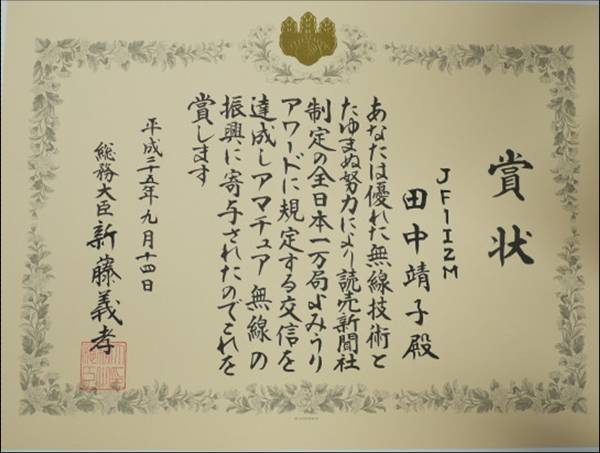 賞状
JF1IZM
田中靖子殿
あなたは優れた無線技術と
たゆまぬ努力により読売新聞社
制定の全日本一万局よみうり
アワードに規定する交信を
達成しアマチュア無線の
振興に寄与されたのでこれを
賞します
平成二十五年九月十四日
総務大臣 新藤義孝